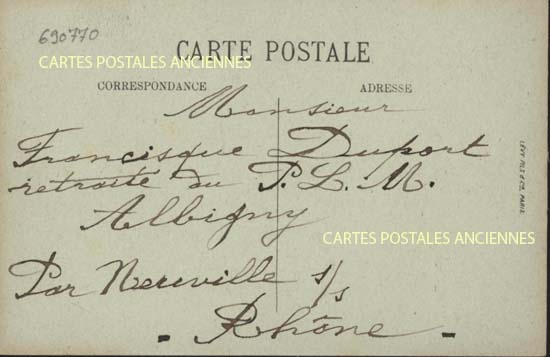 690770
CARTE POSTALE
CARTES POSTALES ANCIENNES
CORRESPONDANCE ADRESSE
Monsieur
Francisque Duport
retraité du P. L. M.
Albigny
CARTES POSTALES ANCIENNES
Par Neuville s/s
- Rhône -
LÉVY FILS & CIE, PARIS